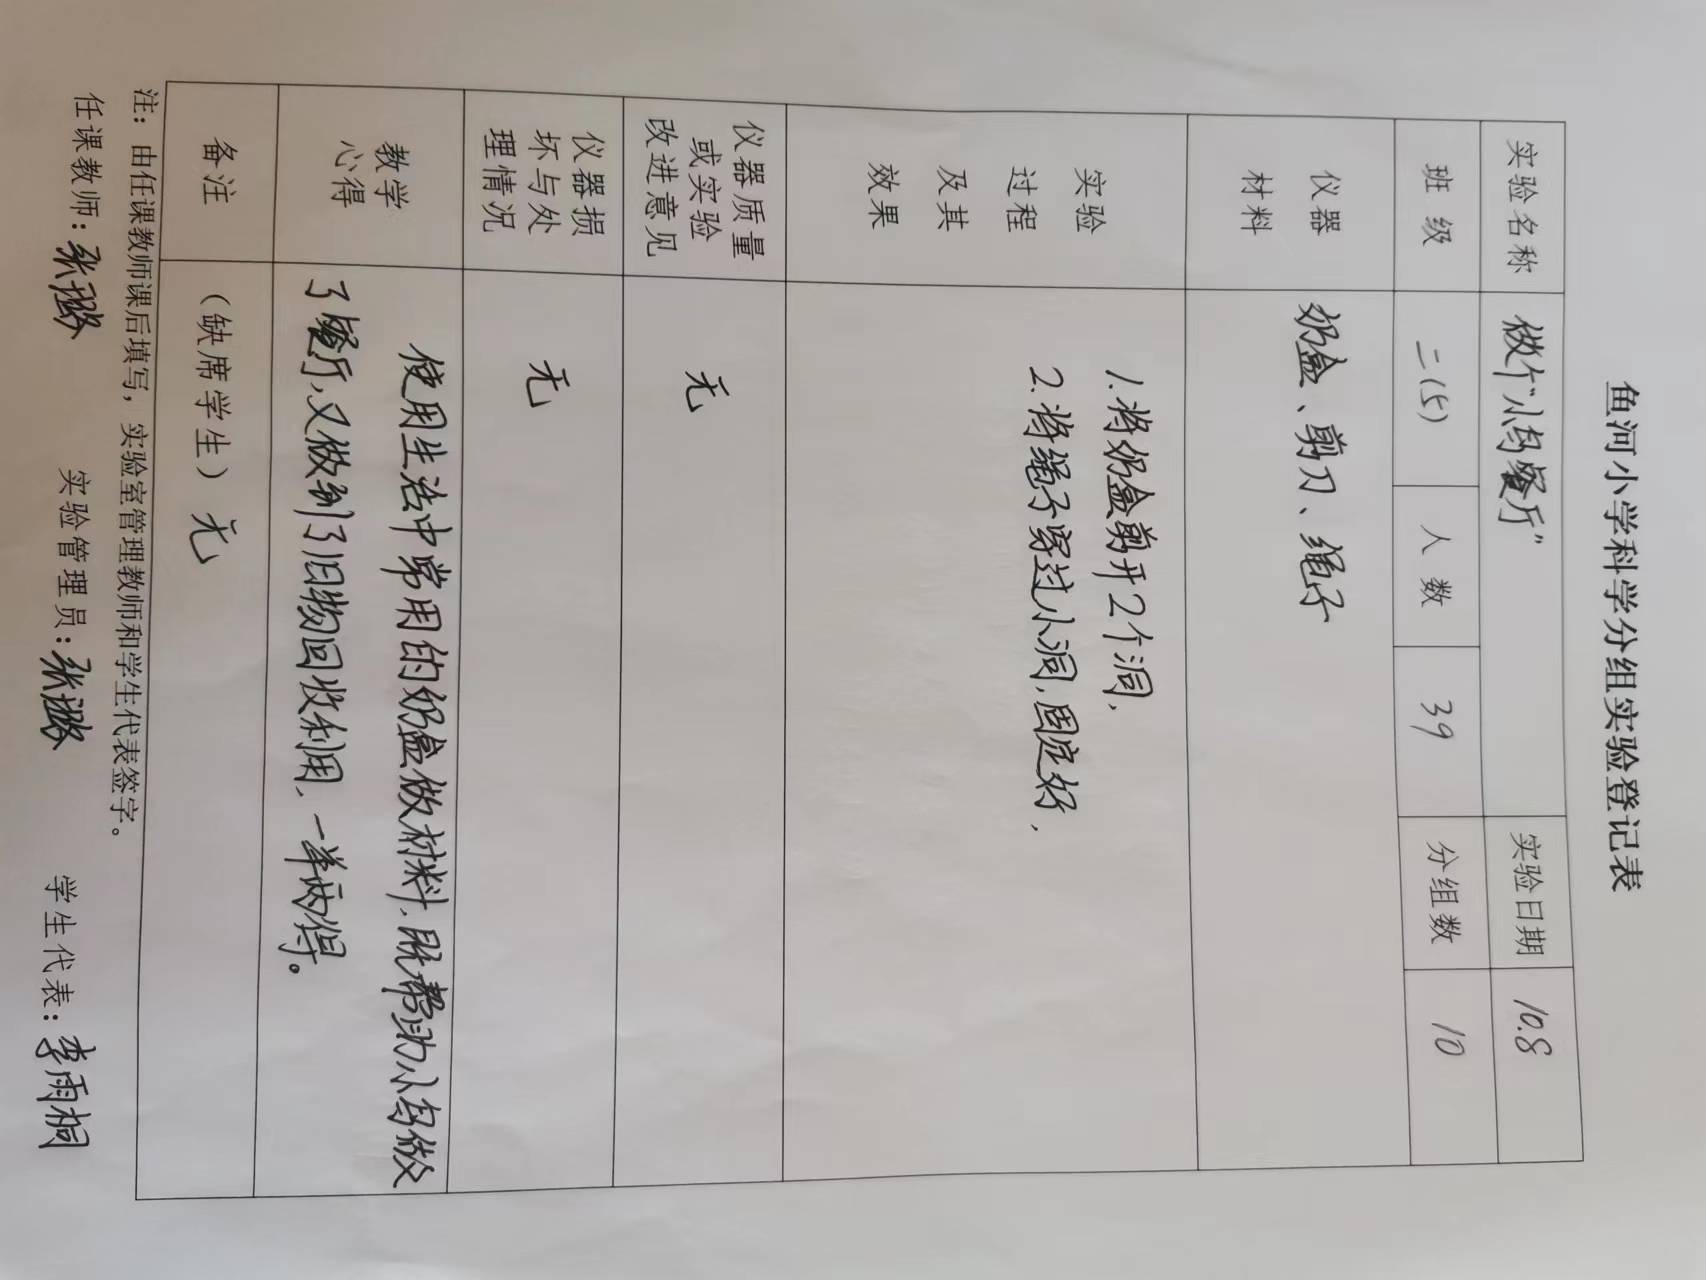 鱼河小学科学分组实验登记表
实验名称 做个“小鸟餐厅” 实验日期 10.8
班级 二(5) 人数 39 分组数 10
仪器
材料
奶盒、剪刀、绳子
实验
过程
及其
效果
1.将奶盒剪开2个洞,
2.将绳子穿过小洞,固定好,
仪器质量
或实验
改进意见
无
仪器损
坏与处
理情况
无
教学
心得
使用生活中常用的奶盒做材料,既帮助小鸟做
了餐厅,又做到了旧物回收利用,一举两得。
备注 (缺席学生)无
注:由任课教师课后填写,实验室管理教师和学生代表签字。
任课教师:张 实验管理员:张 学生代表:李雨桐